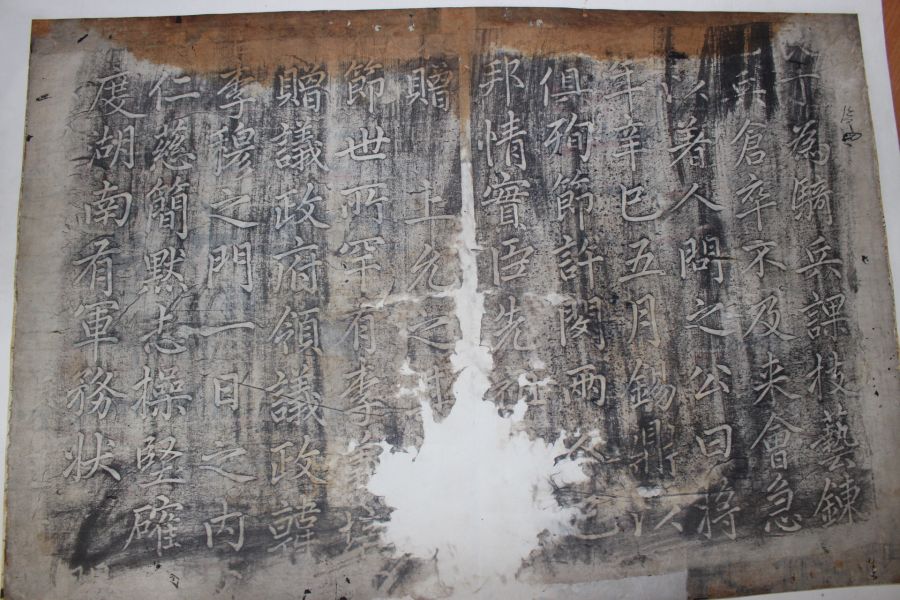 丁為騎兵課技藝鍊
兵倉卒不及来會急
以著人問之公曰将
年辛巳五月錫鼎以
俱殉節許閔兩公已
邦情實臣先祖
贈 上允之
節世所罕有李
贈議政府領議政韓
李穆之門一日之内
仁慈簡默志操堅確
度湖南有軍務状